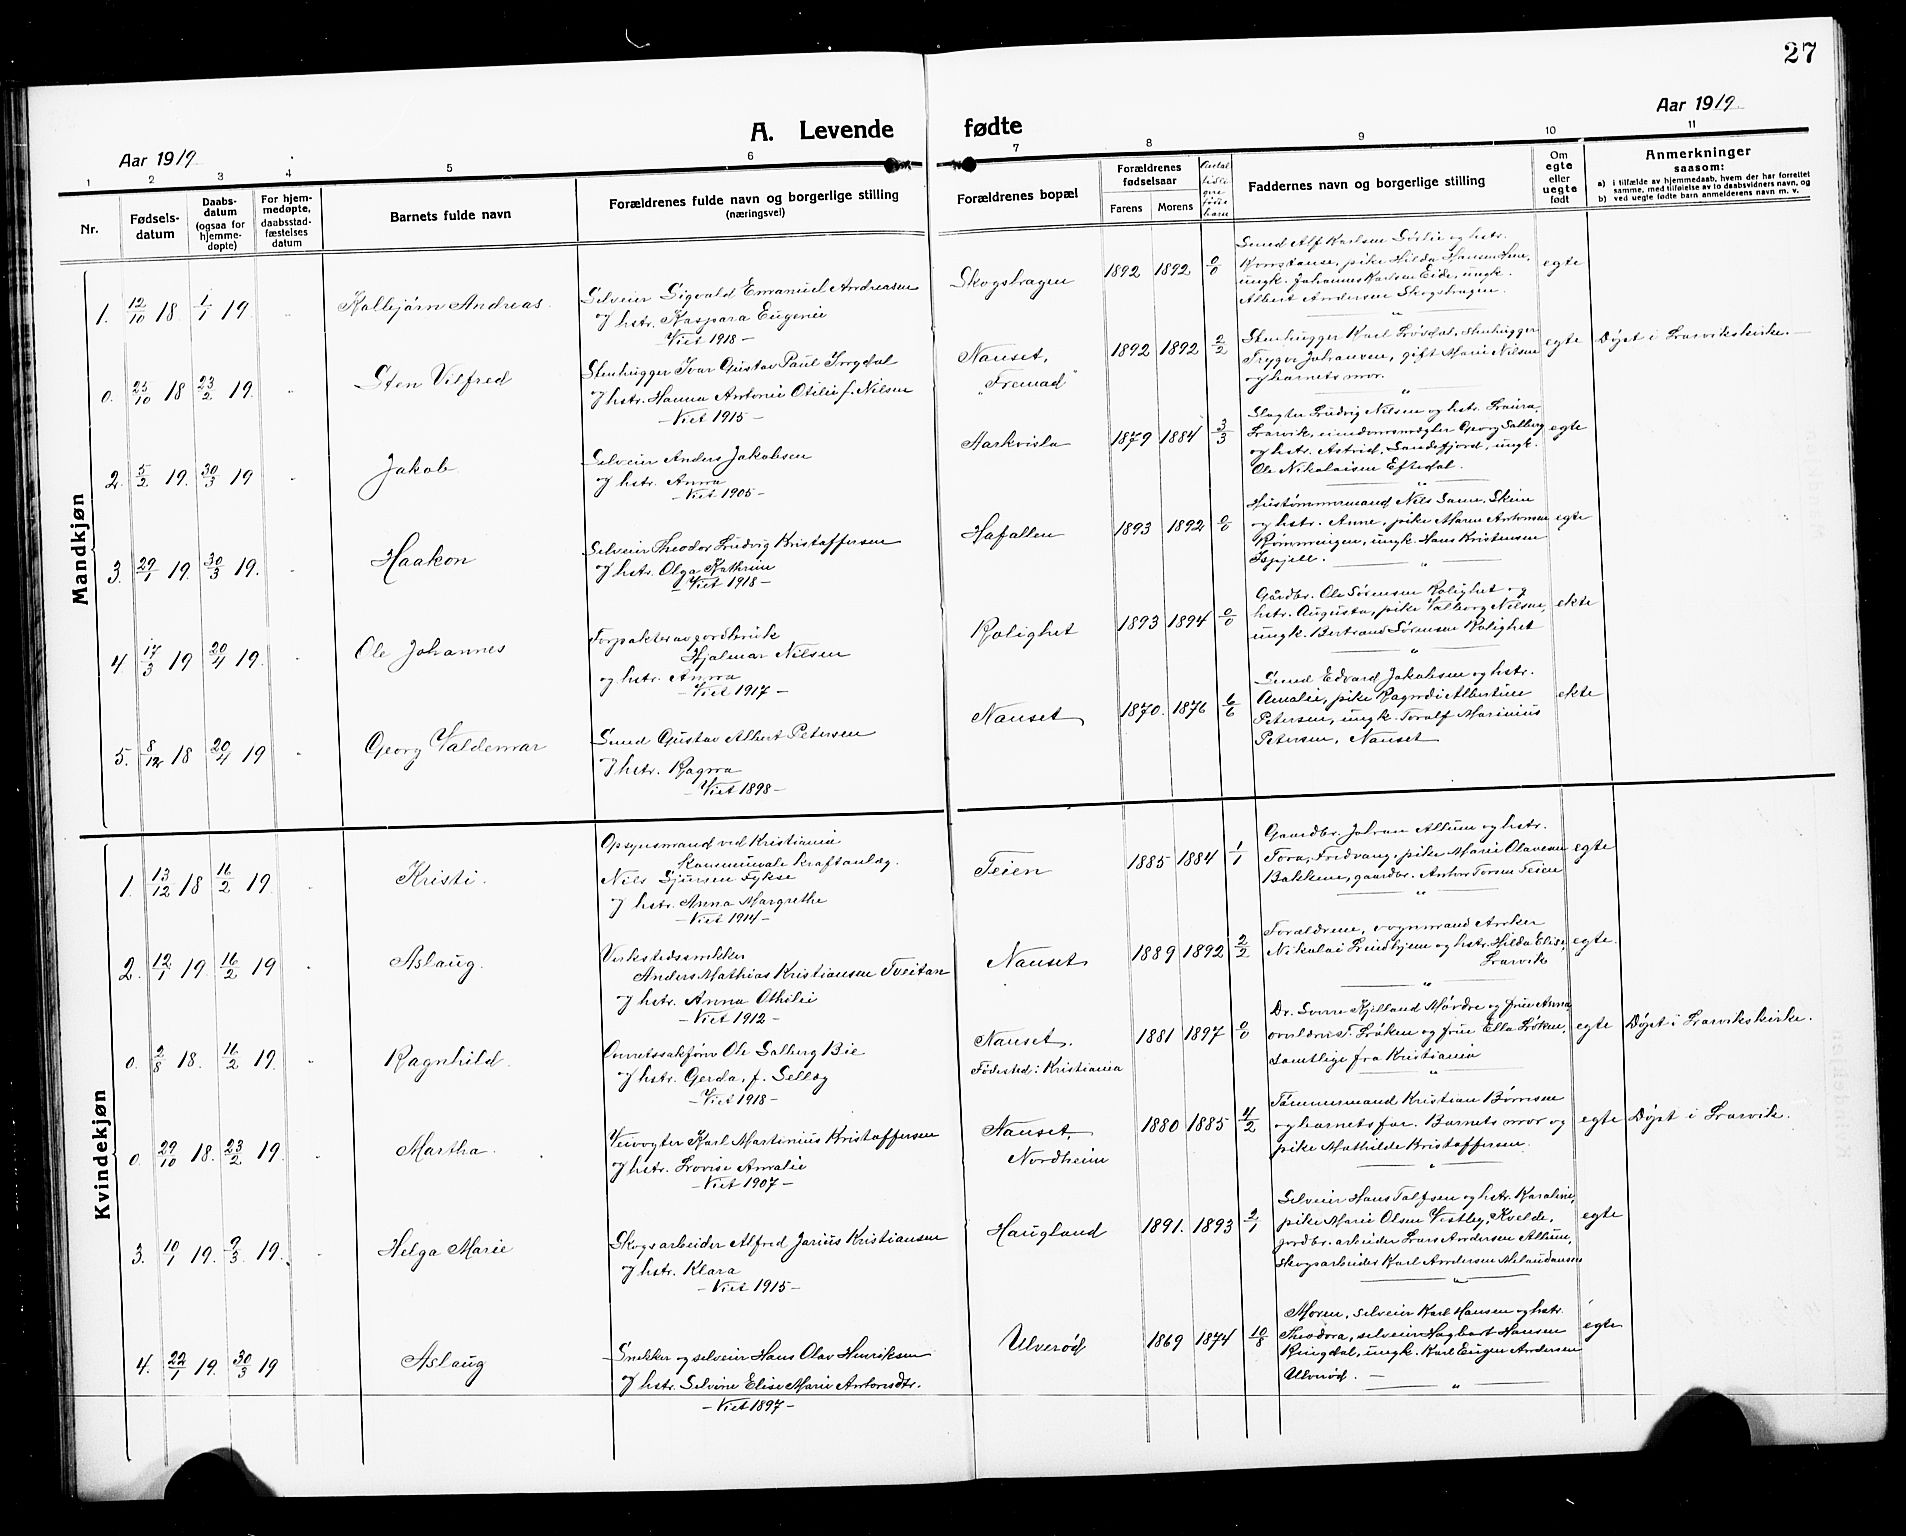 27
Aar 1919.
A. Levende fødte
Aar 1919.
1 2 3 4 5 6 7 8 9 10 11
Nr.
Fødsels-
datum
Daabs-
datum
(ogsaa for
hjemme-
døpte)
For hjem-
medøpte,
daabsstad-
fæstelses
datum
Barnets fulde navn
Forældrenes fulde navn og borgerlige stilling
(næringsvei)
Forældrenes bopæl
Forældrenes
fødselsaar
Farens Morens
Faddernes navn og borgerlige stilling
Om
egte
eller
uegte
født
Anmerkninger
saasom:
a) i tilfælde av hjemmedaab, hvem der har forrettet
samme, med tilføielse av to daabsvidners navn, og
b) ved uegte fødte barn anmelderens navn m. v.
Mandkjøn
1. 12/10 18 1/1 19
Kolbjørn Andreas.
Selveier Sigvald Emanuel Andreasen
og hstr. Kaspara Eugenie
Viet 1918 –
Skogshagen
1892 1892 0/0
Smed Alf Karlsen Sørlie og hstr.
Konstanse, pike Hilda Hansen
ungk. Johannes Karlsen Eide, ungk.
Albert Andersen Skogshagen.
egte
0. 25/10 18 23/2 19.
Sten Vilfred
Stenhugger Ivar Gustav Paul
og hstr. Hanna Antonie Otilie f. Nilsen
– Viet 1915 –
Nanset,
"Fremad"
1892 1892 2/2
Stenhugger Karl Brøvdal, stenhugger
Trygve Johansen, gift Marie Nilsen
og barnets mor.
egte
Døpt i Larvikskirke. –
2. 5/2 19. 30/3 19
Jakob
Selveier Anders Jakobsen
og hstr. Anna
– Viet 1905 –
Aarkvisla
1879 1884 3/3
Slagter Ludvig Nilsen og hstr. Laura,
Larvik, eiendomsmægler Georg Salberg
og hstr. Astrid, Sandefjord, ungk.
Ole Nikolaisen Eftedal.
egte
3. 29/1 19. 30/3 19.
Haakon
Selveier Theodor Ludvig Kristoffersen
og hstr. Olga Kathrine
– Viet 1918 –
Hafallen
1893 1892 0/0
Hustømmermand Nils Same, Skien
og hstr. Anne, pike Maren Antonsen
Rømmingen, ungk. Hans Kristensen
egte
4 17/3 19 20/4 19.
Ole Johannes
Forpakter av gordbruk
Hjalmar Nilsen
og hstr. Anna
– Viet 1917 –
Rolighet
1893 1894 0/0
Gårdbr. Ole Sørensen Rolighet og
hstr. Augusta, pike Valborg Nilsen,
ungk. Bertrand Sørensen Rolighet
ekte
5. 8/12 18 20/4 19
Georg Valdemar
Smed Gustav Albert Petersen
og hstr. Ragna
– Viet 1898 –
Nanset
1870. 1876 6/6
Smed Edvard Jakobsen og hstr.
Amalie, pike Ragndi Albertine
Petersen, ungk. Toralf Marinius
Petersen, Nanset
ekte
Kvindekjøn
1. 13/12 18 16/2 19.
Kristi.
Opsynsmand ved Kristiania
Kommunale kraftanlæg.
Nils Sjursen Fykse
og hstr. Anna Margrethe
– Viet 1914 –
Teien
1885 1884 1/1
Gaardbr. Johan Allum og hstr.
Tora, Fredvang, pike Marie Olavesen
Bakkene, gaardbr. Anton Torsen Teien
egte
2. 12/1 19 16/2 19
Aslaug.
Verkstedssnekker
Anders Mathias Kristiansen Tveitan
og hstr. Anna Othilie
– Viet 1912 –
Nanset
1889 1892 2/2
Forældrene, vognmand Anker
Nikolai Lindhjem og hstr. Hilda Elise,
Larvik
egte.
0. 2/8 18. 16/2 19.
Ragnhild.
Overretssakfører Ole Salberg Bie
og hstr. Gerda, f. Selleg
– Viet 1918 –
Nanset.
Fødested: Kristiania
1881 1897 0/0
Dr. Sverre Kjelland Mørdre og frue Anna
overlærer T. Løken og frue Ella Løken,
samtlige fra Kristiania
egte
Døpt i Larvikskirke.
0. 29/10 18. 23/2 19.
Martha.
Veivogter Karl Martinius Kristoffersen
og hstr. Lovise Amalie
– Viet 1907 –
Nanset,
Nordheim
1880 1885 4/2
Tømmermand Kristian Børresen
og barnets far. Barnets mor og
pike Mathilde Kristoffersen.
egte
Døpt i Larvik.
3. 10/1 19. 9/3 19.
Helga Marie
Skogsarbeider Alfred Jarius Kristiansen
og hstr. Klara
– Viet 1915 –
Haugland
1891. 1893 2/1
Selveier Hans Tolfsen og hstr. Karoline,
pike Marie Olsen Vestby, Kvelde,
jordbr. arbeider Lars Andersen Allum,
skogsarbeider Karl Andersen
egte
4. 22/1 19. 30/3 19
Aslaug
Snekker og selveier Hans Olav Henriksen
og hstr. Selvine Elise Marie Antonsdtr.
– Viet 1897 –
Ulverød
1869 1874 10/8
Moren, selveier Karl Hansen og hstr.
Theodora, selveier Hagbart Hansen
Ringdal, ungk. Karl Eugen Andersen
Ulverød. –
egte